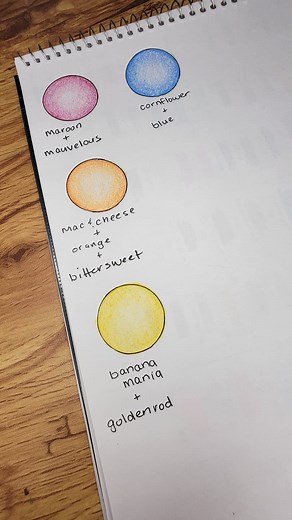 maroon
+
mauvelous
cornflower
+
blue
mac & cheese
+
orange
+
bittersweet
banana
mania
+
goldenrod